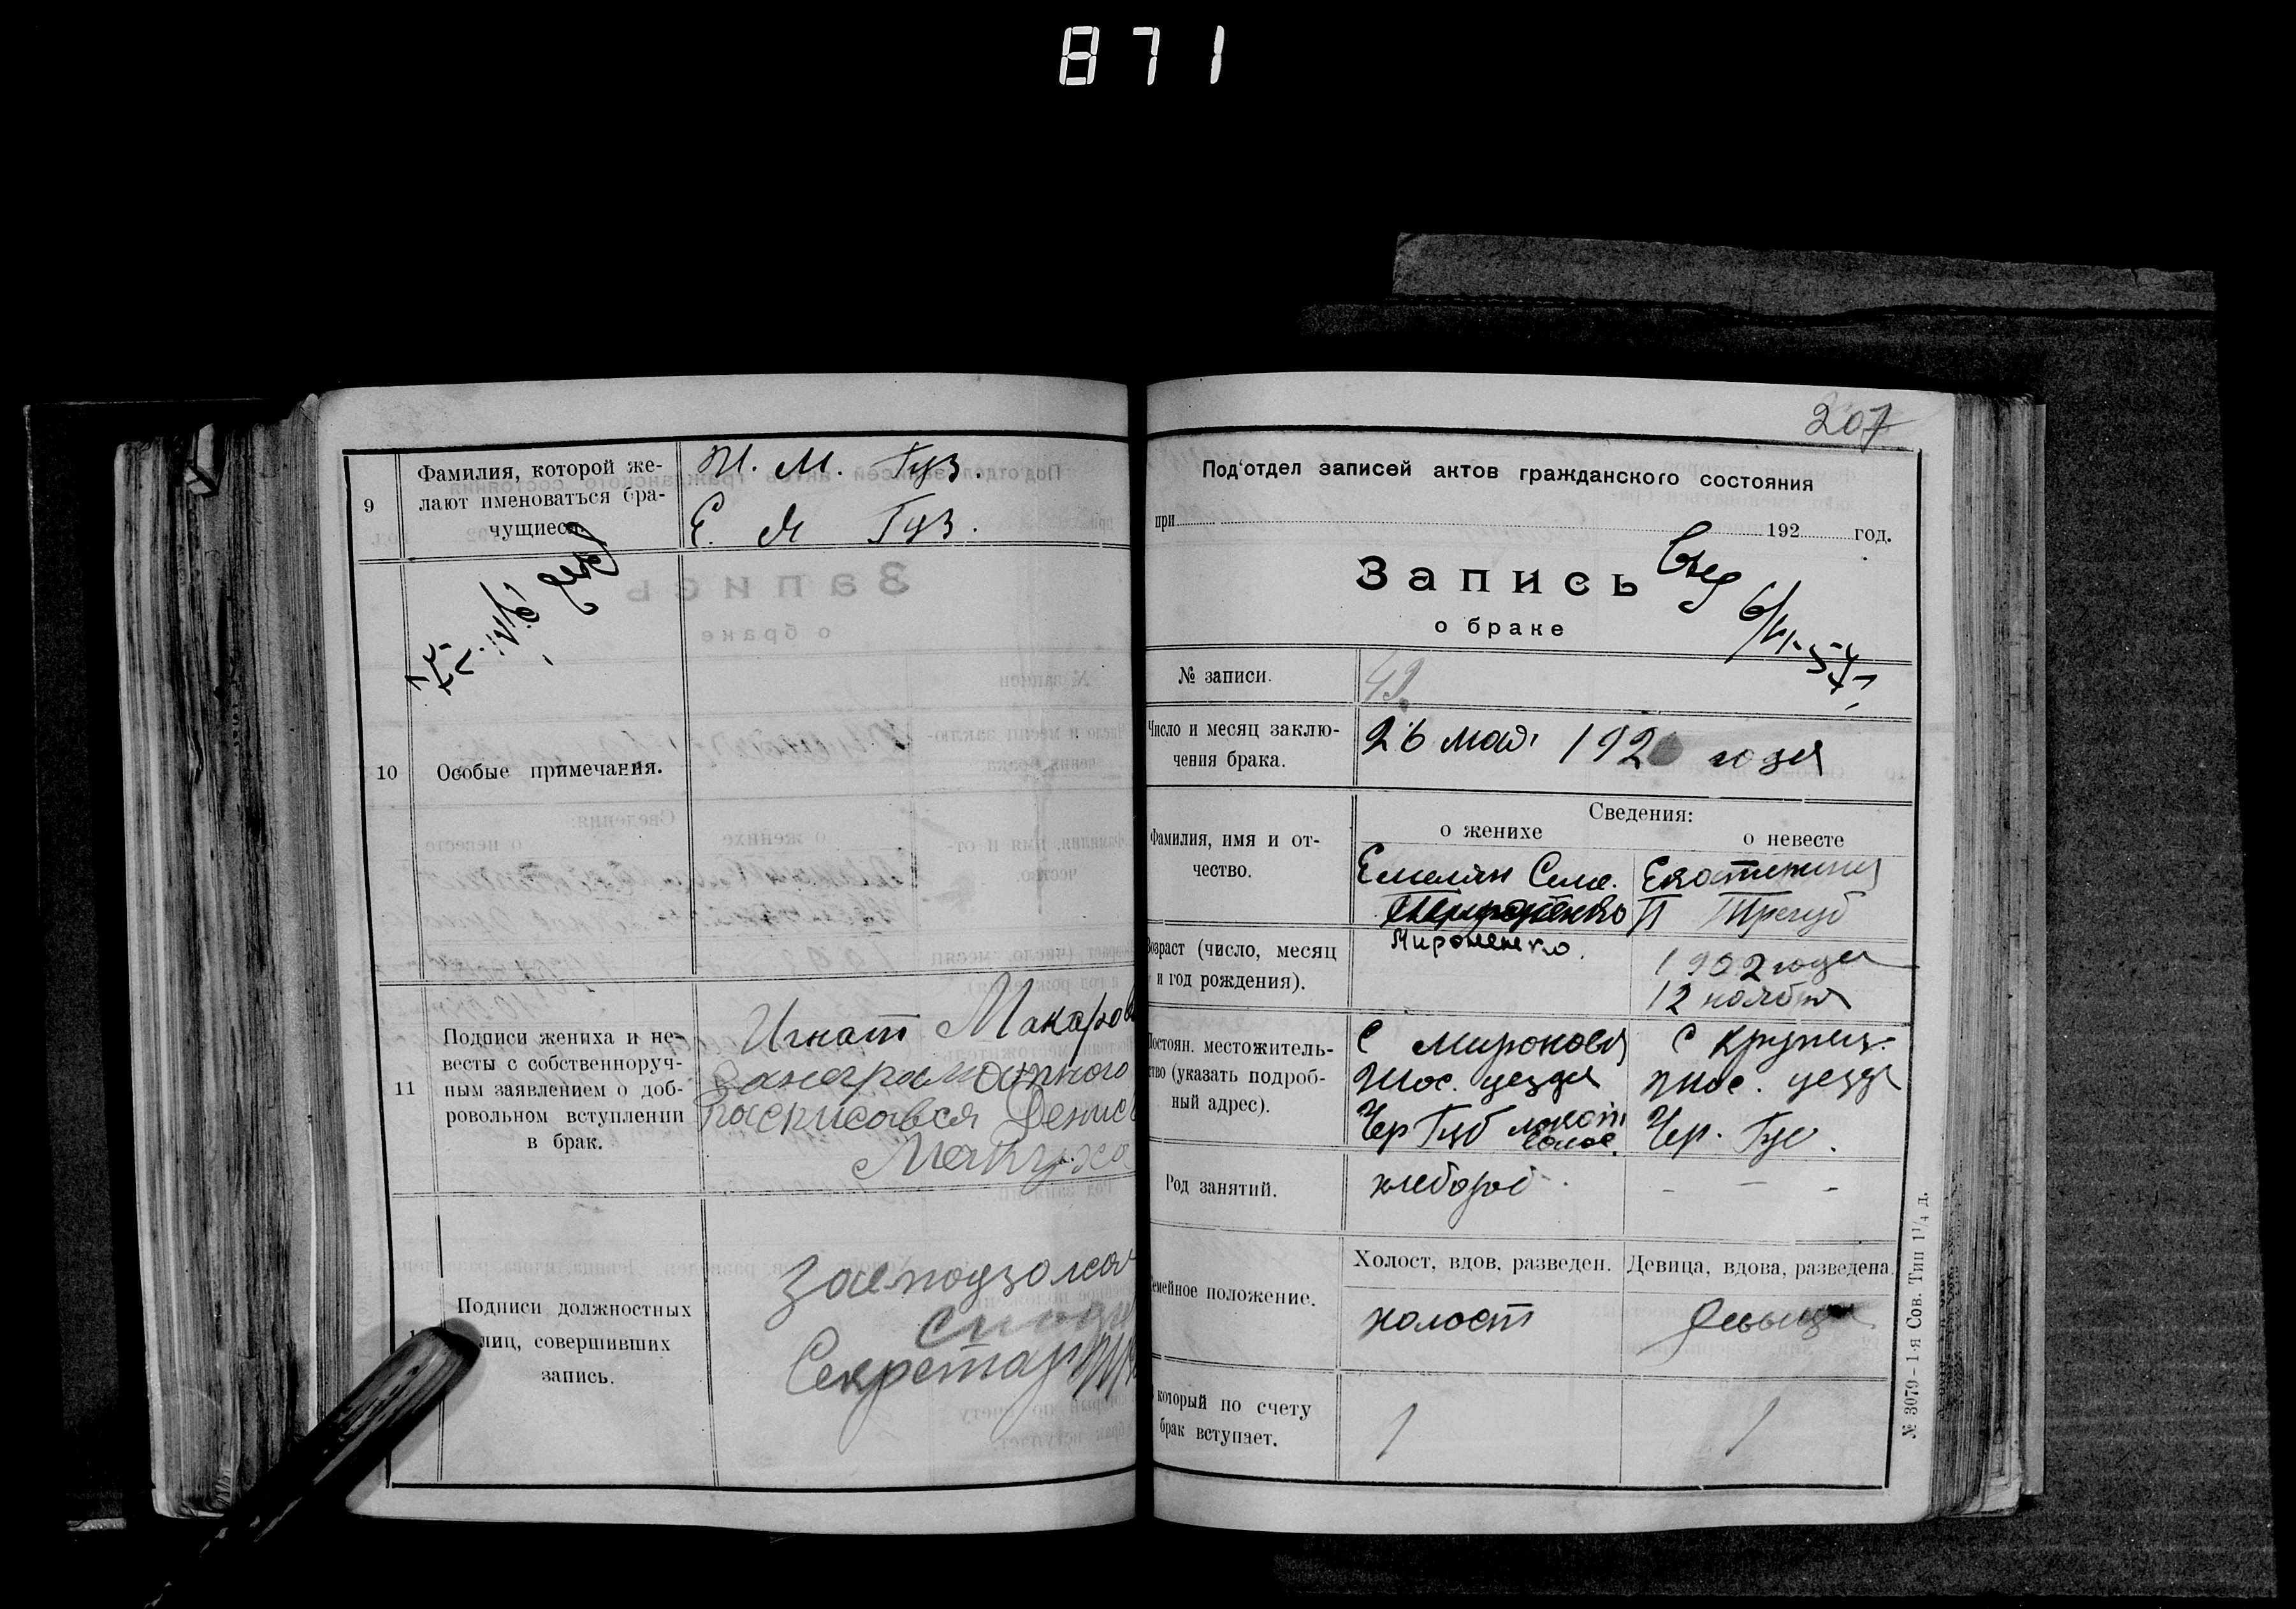 871
9
Фамилия, которой же-
лают именоваться бра-
чущиеся.
И. М. Гуз.
Е. М Гуз.
10
Особые примечания.
11
Подписи жениха и не-
весты с собственноруч-
ным заявлением о доб-
ровольном вступлении
в брак.
Игнат Макаров
Занеграмотного
Расписався Денис
Подписи должностных
лиц, совершивших
запись.
Секретар
207
Под'отдел записей актов гражданского состояния
при 192 год.
Запись
о браке
№ записи.
49.
Число и месяц заклю-
чения брака.
26 мая 192 года
Сведения:
о женихе
о невесте
Фамилия, имя и от-
чество.
Емелян Семе.
Мироненко.
Екатерина
П Трегуб
Возраст (число, месяц
и год рождения).
1902 года
12 ноября
Постоян. местожитель-
ство (указать подроб-
ный адрес).
С Миронова
уезда
Чер Губ
С Крупец.
уезда
Чер. Гус.
Род занятий.
хлебороб
- - -
Семейное положение.
Холост, вдов, разведен.
Девица, вдова, разведена.
холост
девица
который по счету
брак вступает.
1
1
№ 3079-1-я Сов. Тип 1 1/4 д.